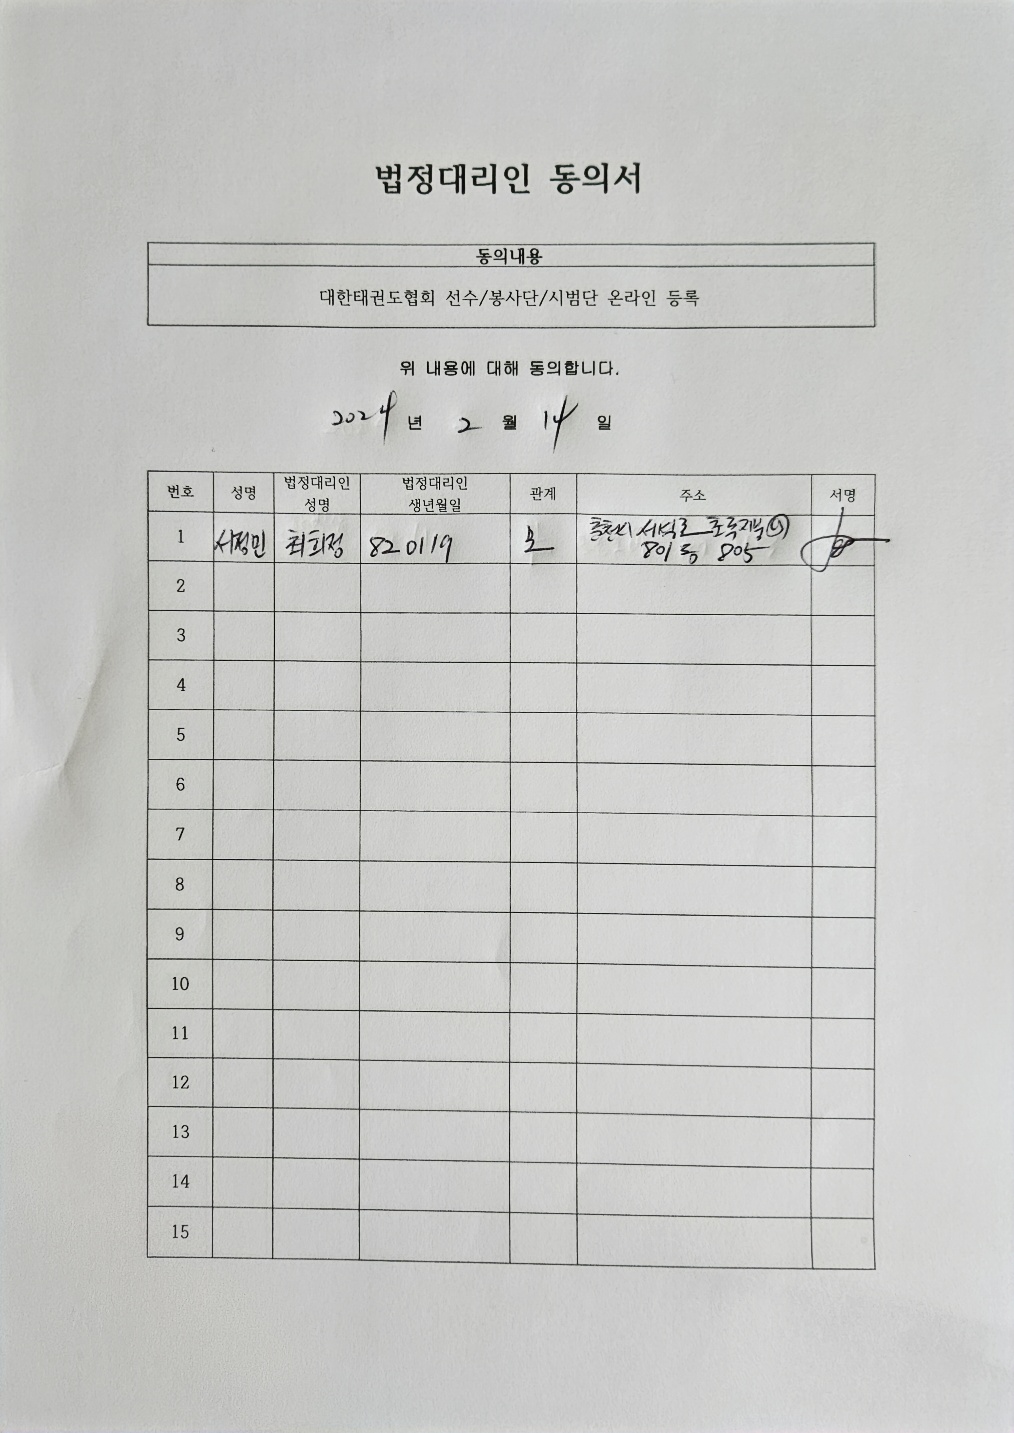 법정대리인 동의서
동의내용
대한태권도협회 선수/봉사단/시범단 온라인 등록
위 내용에 대해 동의합니다.
2024 년 2 월 14 일
번호 성명 법정대리인 성명 법정대리인 생년월일 관계 주소 서명
1 서정민 최희정 820119 모 춘천시 서석로 초록지붕
801동 805
2
3
4
5
6
7
8
9
10
11
12
13
14
15